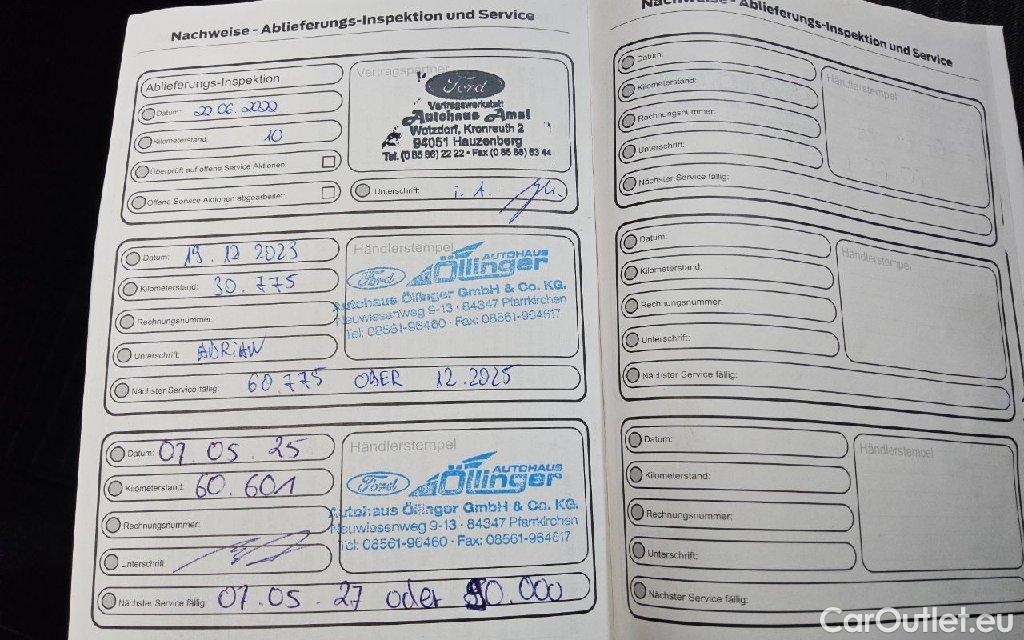 Nachweise - Ablieferungs-Inspektion und Service
Ablieferungs-Inspektion
Datum: 20 06. 2022
Kilometerstand: 10
Überprüft auf offene Service Aktionen:
Offene Service Aktionen abgearbeitet:
Vertragspartner
Ford
Vertragswerkstatt
Autohaus Amsl
Wotzdorf, Kronreuth 2
94051 Hauzenberg
Tel. (0 85 86) 22 22 • Fax (0 85 86) 63 44
Unterschrift: i. A.
Datum: 19. 12 2023
Kilometerstand: 30.775
Rechnungsnummer:
Unterschrift: ADRIAN
Nächster Service fällig: 60.775 ODER 12.2025
Händlerstempel
Ford AUTOHAUS
Öllinger
Autohaus Öllinger GmbH & Co. KG.
Neuwiesenweg 9-13 · 84347 Pfarrkirchen
Tel: 08561-96460 · Fax: 08561-964617
Datum: 07. 05. 25
Kilometerstand: 60.601
Rechnungsnummer:
Unterschrift:
Nächster Service fällig: 07.05.27 oder 90.000
Händlerstempel
Ford AUTOHAUS
Öllinger
Autohaus Öllinger GmbH & Co. KG.
Neuwiesenweg 9-13 · 84347 Pfarrkirchen
Tel: 08561-96460 · Fax: 08561-964617
Nachweise - Ablieferungs-Inspektion und Service
Datum:
Kilometerstand:
Rechnungsnummer:
Unterschrift:
Nächster Service fällig:
Händlerstempel
Datum:
Kilometerstand:
Rechnungsnummer:
Unterschrift:
Nächster Service fällig:
Händlerstempel
Datum:
Kilometerstand:
Rechnungsnummer:
Unterschrift:
Nächster Service fällig:
Händlerstempel
CarOutlet.eu